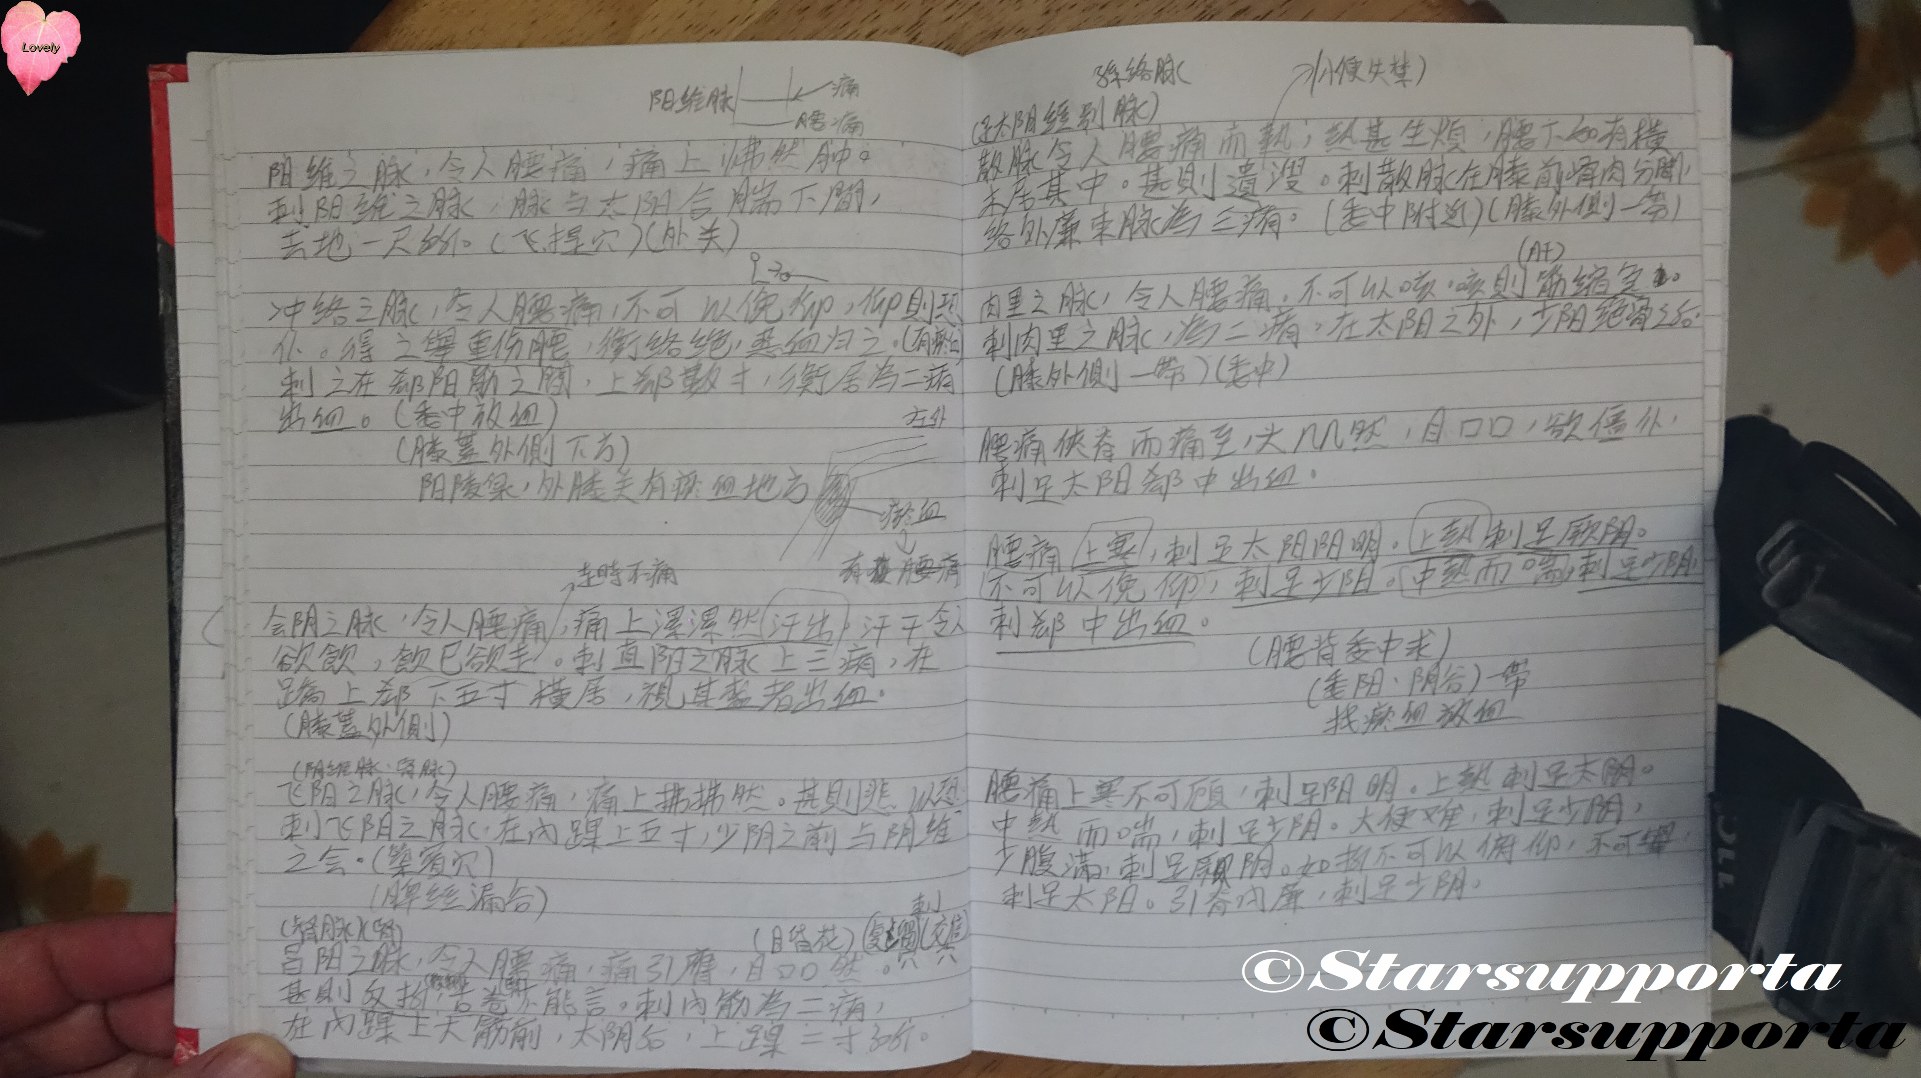 Lovely
阳维脉
痛
腰痛
阳维之脉，令人腰痛，痛上怫然肿。
刺阳维之脉，脉与太阳合腨下間，
去地一尺所。(飞揚穴)(外关)
冲络之脉，令人腰痛，不可以俛仰，仰則恐
仆。得之舉重伤腰，衡络绝，恶血归之。
刺之在郄阳筋之間，上郄數寸，衡居為二痏
出血。(委中放血)
(膝蓋外側下方)
在外
阳陵泉，外膝关有瘀血地方
瘀血
有 腰痛
走時不痛
会阴之脉，令人腰痛，痛上漯漯然汗出，汗干令人
欲飲，飲已欲走。刺直阳之脉上三痏，在
蹻上郄下五寸横居，視其盛者出血。
(膝蓋外側)
(阴维脉·腎脉)
飞阴之脉，令人腰痛，痛上拂拂然。甚則悲以恐
刺飞阳之脉，在內踝上五寸，少阴之前与阴维
之会。(築賓穴)
(脾经漏谷)
刺
(腎脉)(腎)
(目昏花)
(交信)
昌阳之脉，令人腰痛，痛引膺，目囗囗然。
甚則反折，舌卷不能言。刺內筋為二痏，
在內踝上大筋前，太阴后，上踝二寸所。
孫络脉
(小便失禁)
(足太阴经别脉)
散脉令人腰痛而熱，熱甚生煩，腰下如有横
木居其中。甚則遺溲。刺散脉在膝前骨肉分間，
络外廉束脉為三痏。(委中附近)(膝外側一帶)
(肝)
肉里之脉，令人腰痛，不可以咳，咳則筋缩急。
刺肉里之脉，為二痏，在太阳之外，少阳绝骨之后。
(膝外側一帶)(委中)
腰痛侠脊而痛至头几几然，目囗囗，欲僵仆，
刺足太阳郄中出血。
腰痛上寒，刺足太阳阳明。上熱刺足厥阴。
不可以俛仰，刺足少阳。中熱而喘，刺足少阴，
刺郄中出血。
(腰背委中求)
(委阳·阴谷)一带
找瘀血放血
腰痛上寒不可顾，刺足阳明。上熱刺足太阴。
中熱而喘，刺足少阴。大便难，刺足少阴，
少腹滿，刺足厥阴。如折不可以俯仰，不可舉，
刺足太阳。引脊內廉，刺足少阴。
©Starsupporta
©Starsupporta